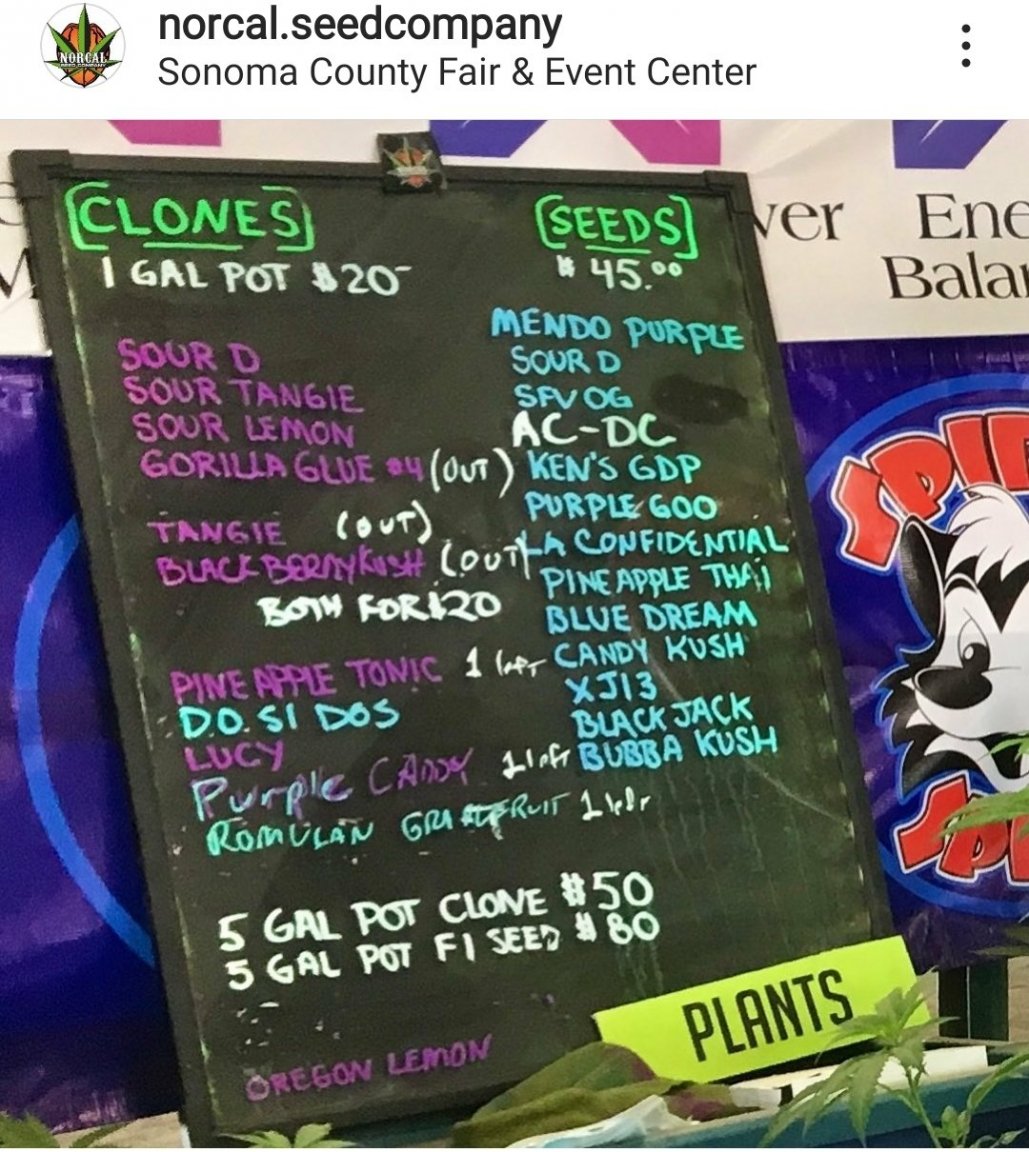 norcal.seedcompany
Sonoma County Fair & Event Center
NORCAL
SEED COMPANY
CLONES
1 GAL POT $20-
SOUR D
SOUR TANGIE
SOUR LEMON
GORILLA GLUE #4 (OUT)
TANGIE (OUT)
BLACK BERRY KUSH (OUT)
BOTH FOR $120
PINEAPPLE TONIC 1 left
D.O. SI DOS
LUCY
Purple CANDY 1 left
ROMULAN GRAPEFRUIT 1 left
SEEDS
$45.00
MENDO PURPLE
SOUR D
SFV OG
AC-DC
KEN'S GDP
PURPLE GOO
LA CONFIDENTIAL
PINEAPPLE THAI
BLUE DREAM
CANDY KUSH
XJ13
BLACK JACK
BUBBA KUSH
5 GAL POT CLONE $50
5 GAL POT F1 SEED $80
OREGON LEMON
PLANTS
ver
Ene
Balan
SPI